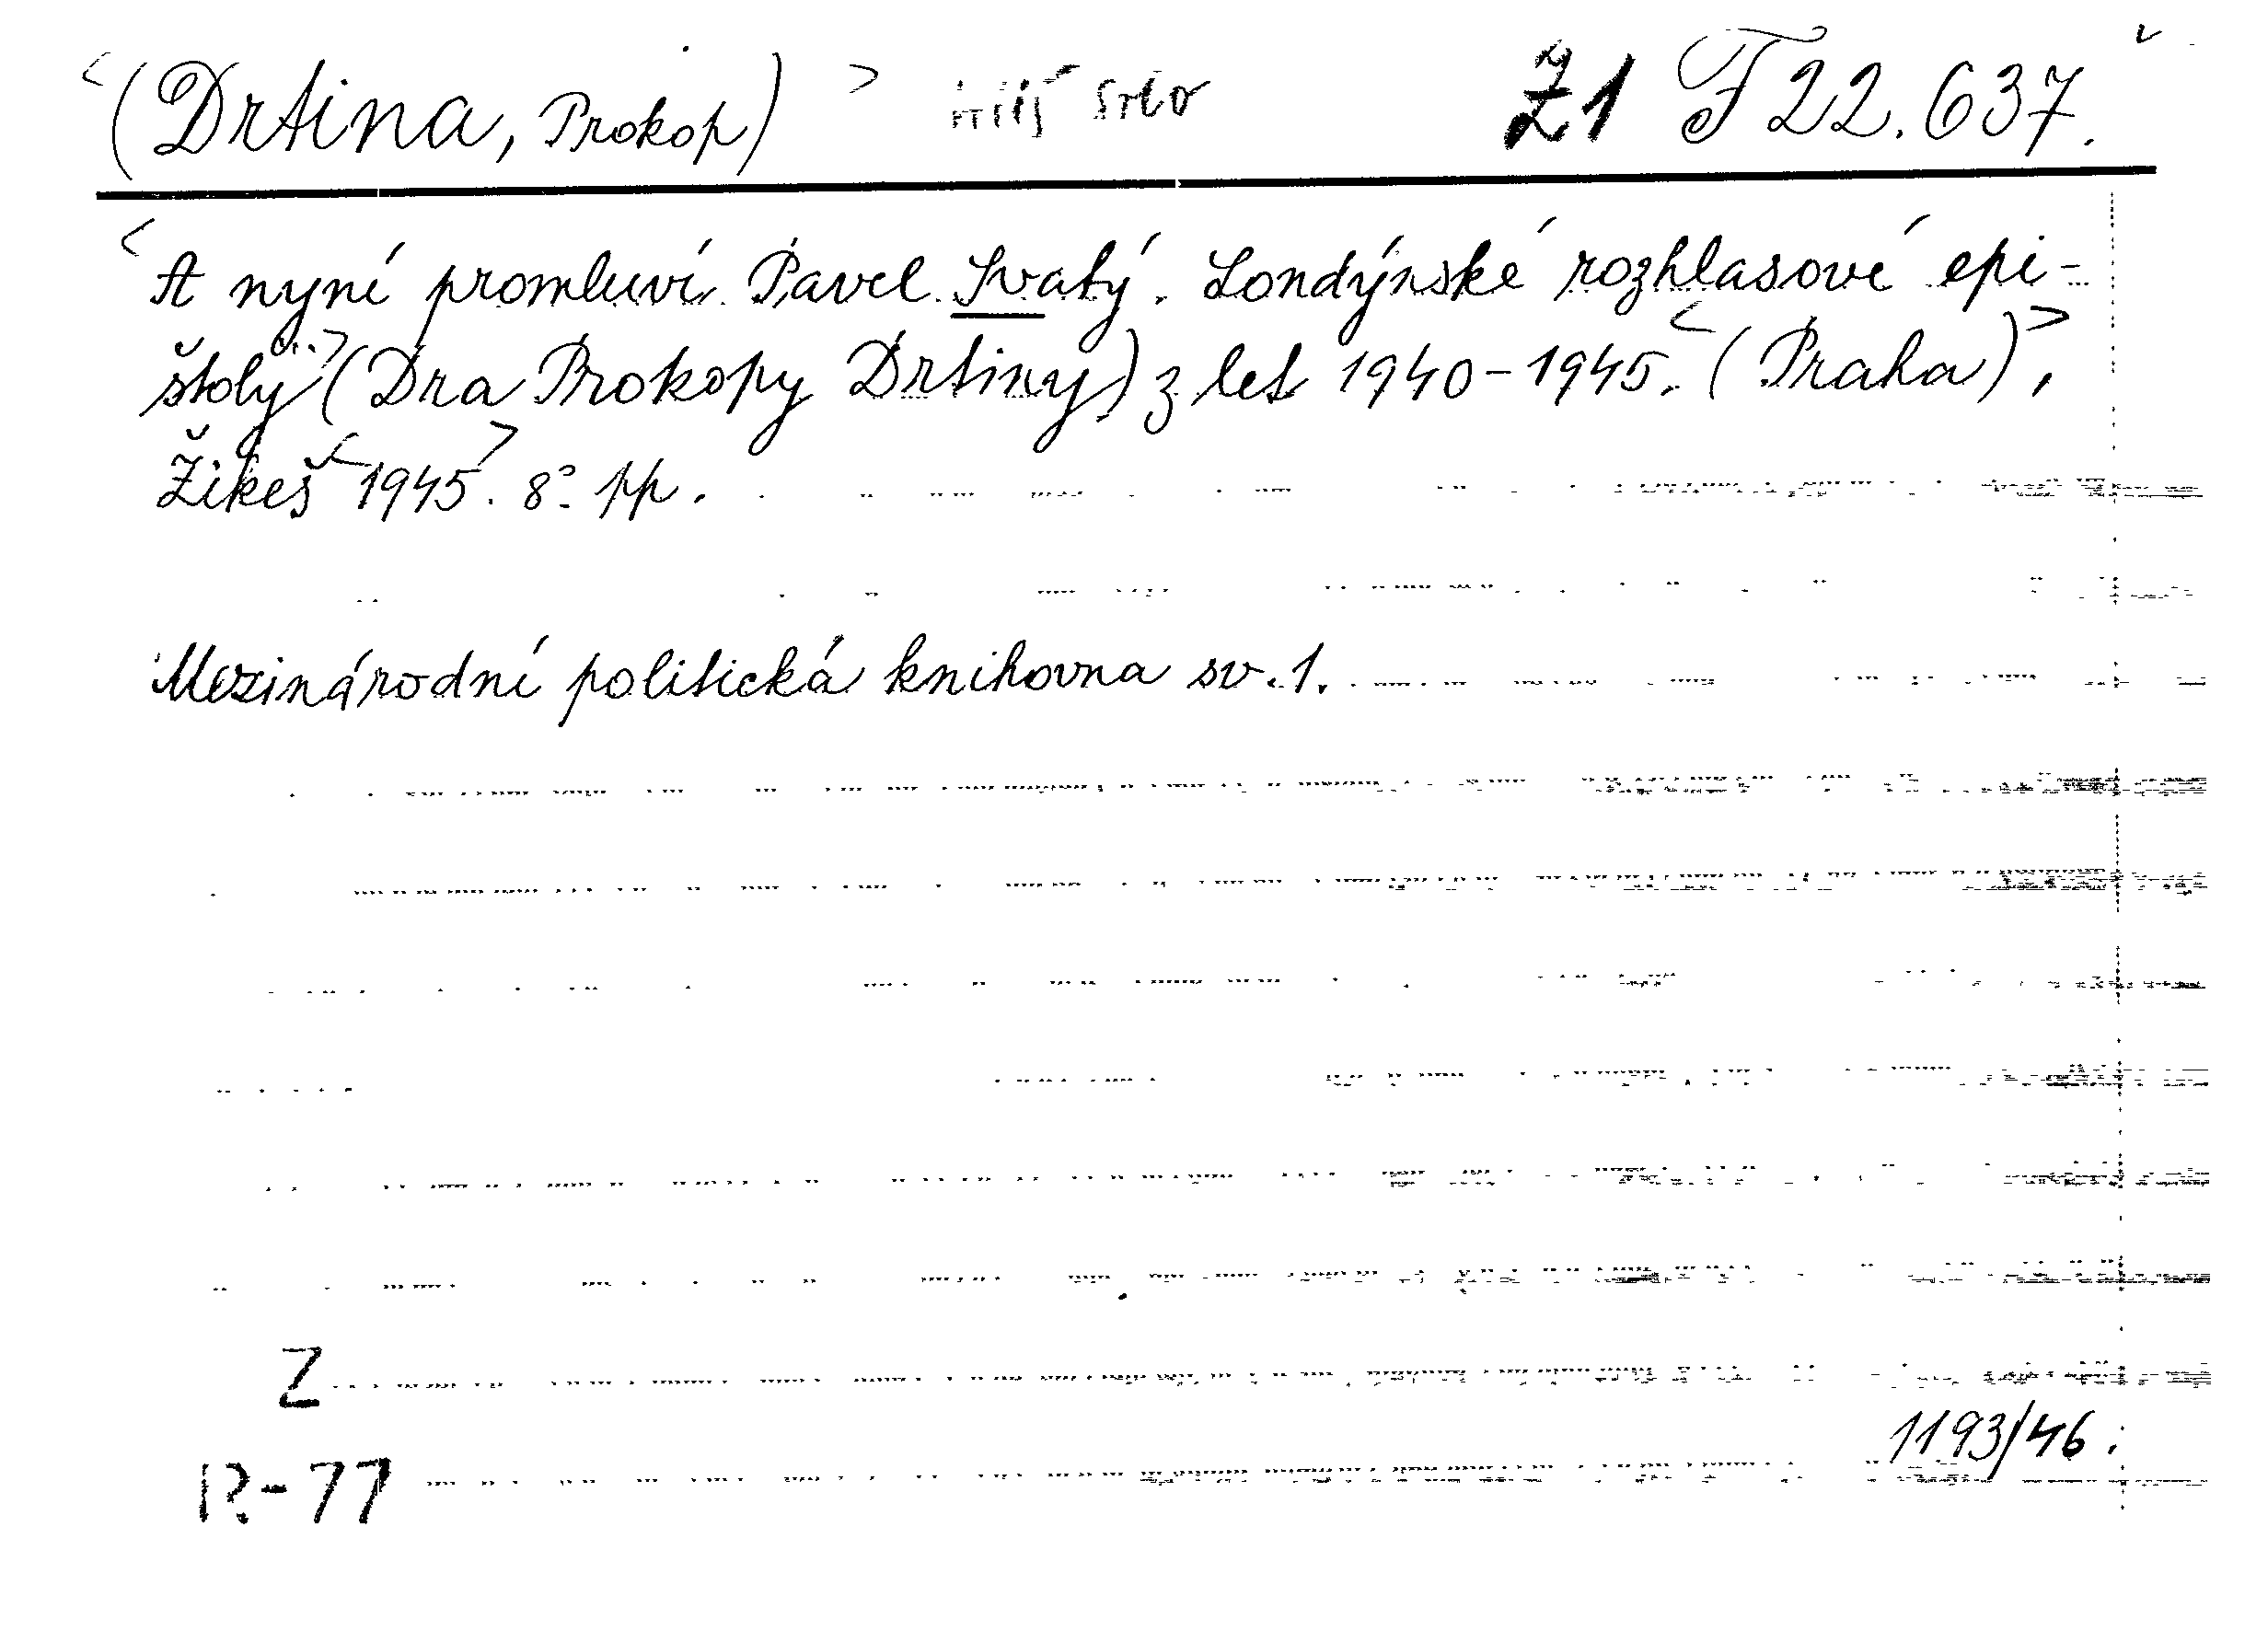 <(Drtina, Prokop)> Ž1 F 22.637.
<A nyní promluví Pavel Svatý. Londýnské rozhlasové epi-
štoly...>(Dra Prokopy Drtiny) z let 1940-1945.<(Praha)>,
Žikeš <1945>. 8° pp.
Mezinárodní politická knihovna sv. 1.
Z
1193/46.
R-77